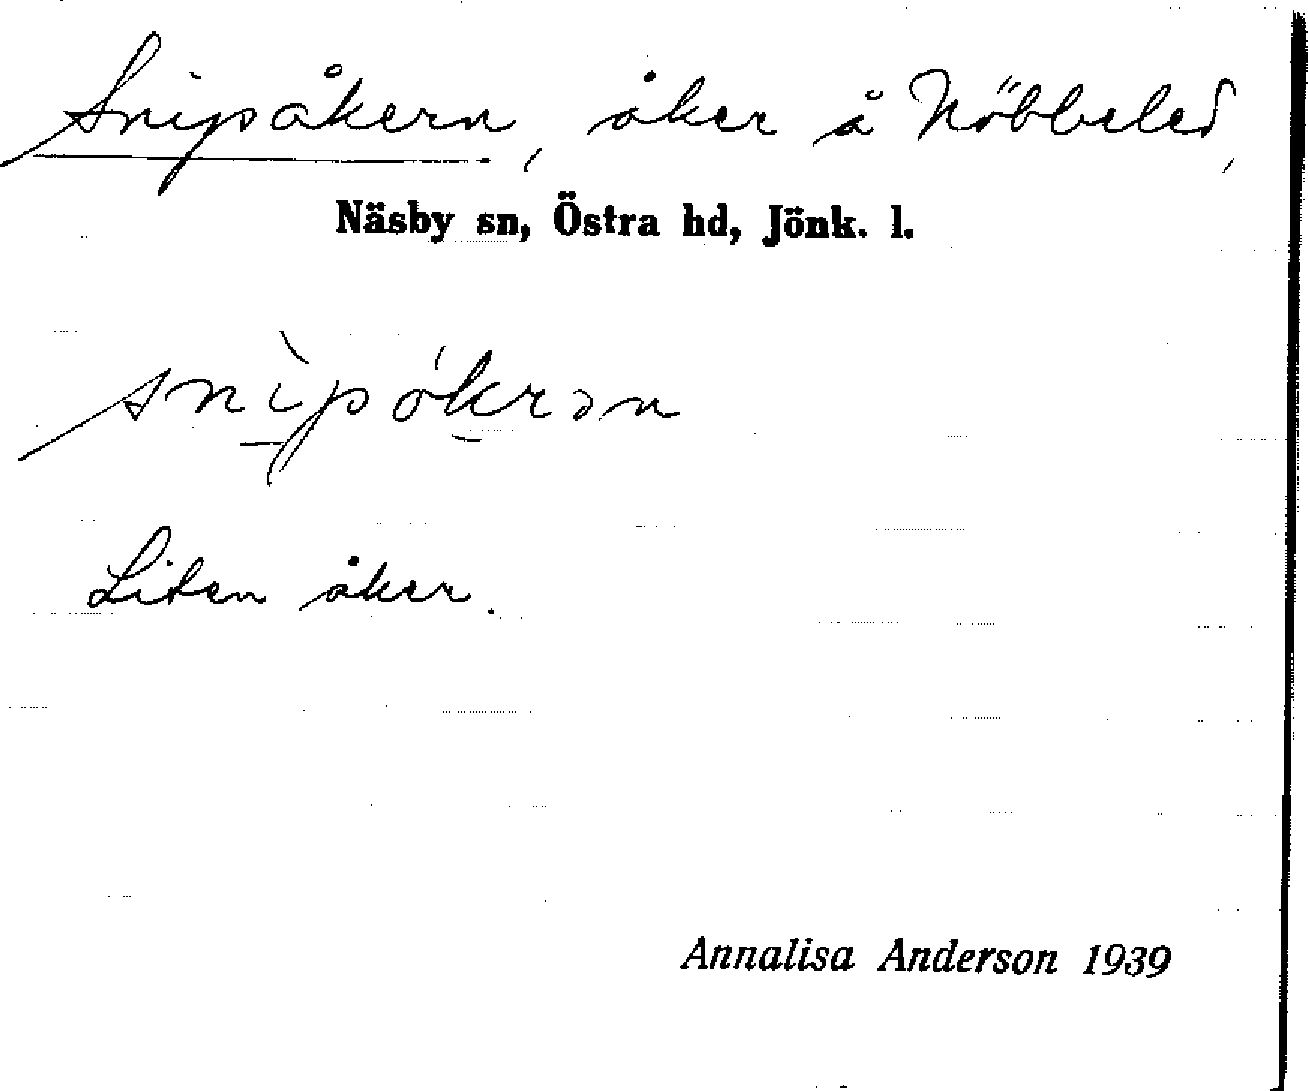 Snipåkern, åker å Nöbbeled,
Näsby sn, Östra hd, Jönk. l.
snì̱pókrən
Liten åker.
Annalisa Anderson 1939